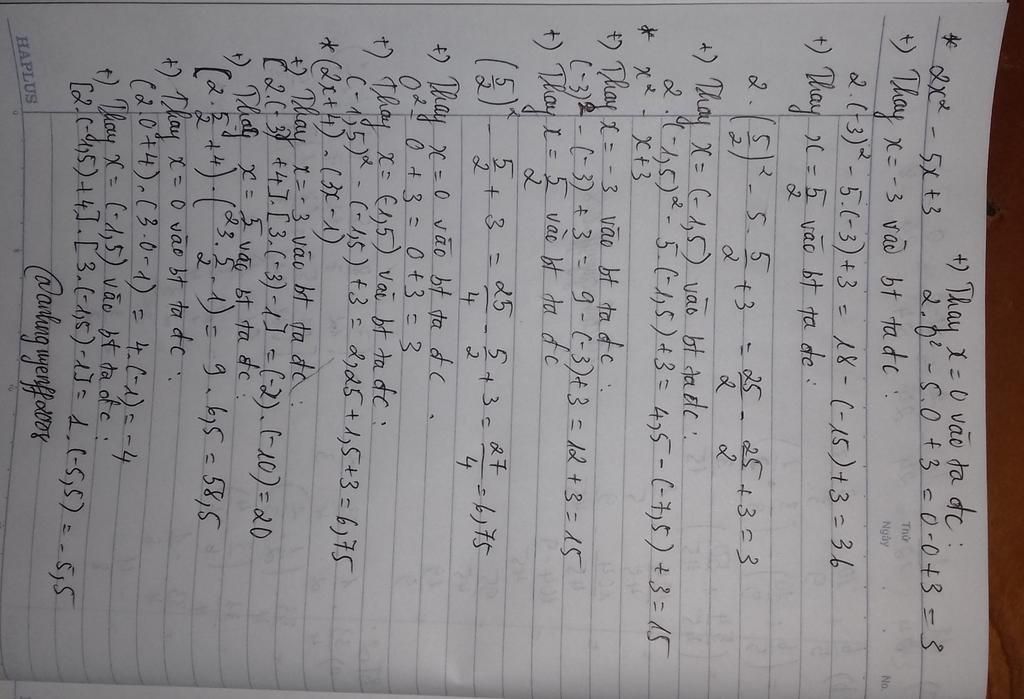 Thứ
Ngày
No.
+) Thay x = 0 vào ta dc:
* 2x² - 5x + 3 2.0² - 5.0 + 3 = 0 - 0 + 3 = 3
+) Thay x = -3 vào bt ta dc:
2.(-3)² - 5.(-3) + 3 = 18 - (-15) + 3 = 36
+) Thay x = 5/2 vào bt ta dc:
2.(5/2)² - 5.5/2 + 3 = 25/2 - 25/2 + 3 = 3
+) Thay x = (-1,5) vào bt ta dc:
2.(-1,5)² - 5.(-1,5) + 3 = 4,5 - (-7,5) + 3 = 15
* x² - x + 3
+) Thay x = -3 vào bt ta dc:
(-3)² - (-3) + 3 = 9 - (-3) + 3 = 12 + 3 = 15
+) Thay x = 5/2 vào bt ta dc
(5/2)² - 5/2 + 3 = 25/4 - 5/2 + 3 = 27/4 = 6,75
+) Thay x = 0 vào bt ta dc.
0² - 0 + 3 = 0 + 3 = 3
+) Thay x = (-1,5) vào bt ta dc:
(-1,5)² - (-1,5) + 3 = 2,25 + 1,5 + 3 = 6,75
* (2x + 4).(3x - 1)
+) Thay x = -3 vào bt ta dc:
[2.(-3) + 4].[3.(-3) - 1] = (-2).(-10) = 20
+) Thay x = 5/2 vào bt ta dc:
(2.5/2 + 4).(3.5/2 - 1) = 9.6,5 = 58,5
+) Thay x = 0 vào bt ta dc:
(2.0 + 4).(3.0 - 1) = 4.(-1) = -4
+) Thay x = (-1,5) vào bt ta dc:
[2.(-1,5) + 4].[3.(-1,5) - 1] = 1.(-5,5) = -5,5
HAPLUS